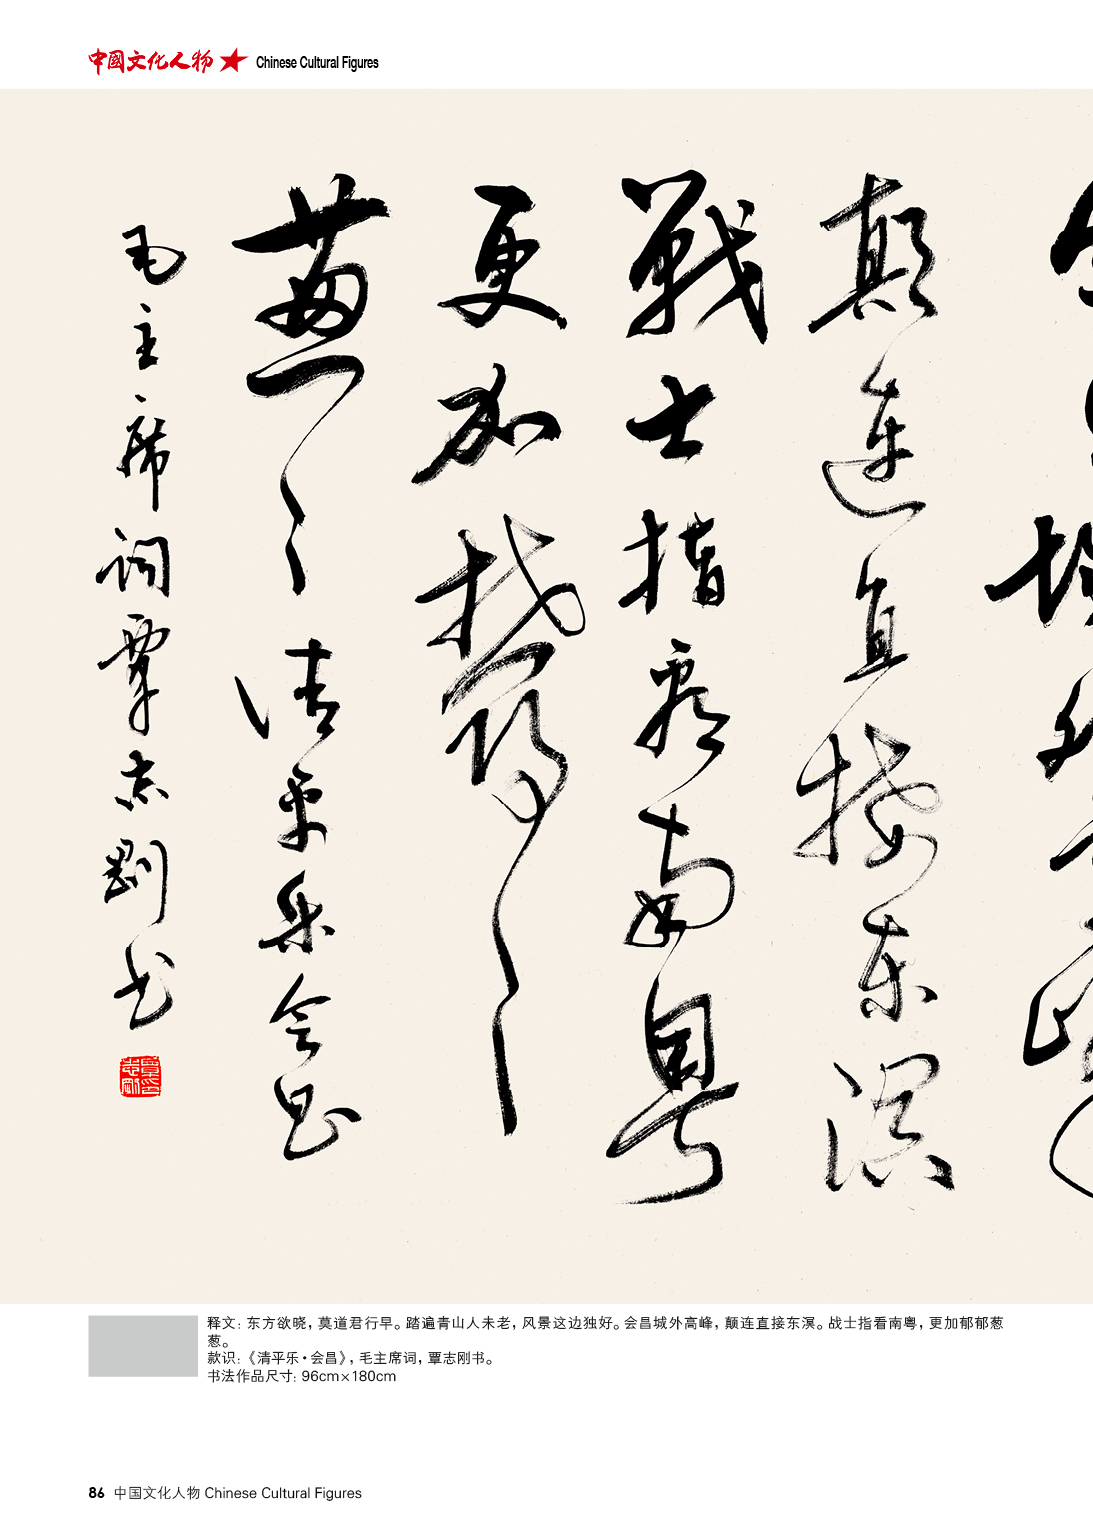 中國文化人物 Chinese Cultural Figures
颠连直接东溟
戰士指看南粤
更加鬱鬱
葱葱 清平乐会昌
毛主席词覃志剛书
释文：东方欲晓，莫道君行早。踏遍青山人未老，风景这边独好。会昌城外高峰，颠连直接东溟。战士指看南粤，更加郁郁葱
葱。
款识：《清平乐·会昌》，毛主席词，覃志刚书。
书法作品尺寸：96cm×180cm
86 中国文化人物 Chinese Cultural Figures